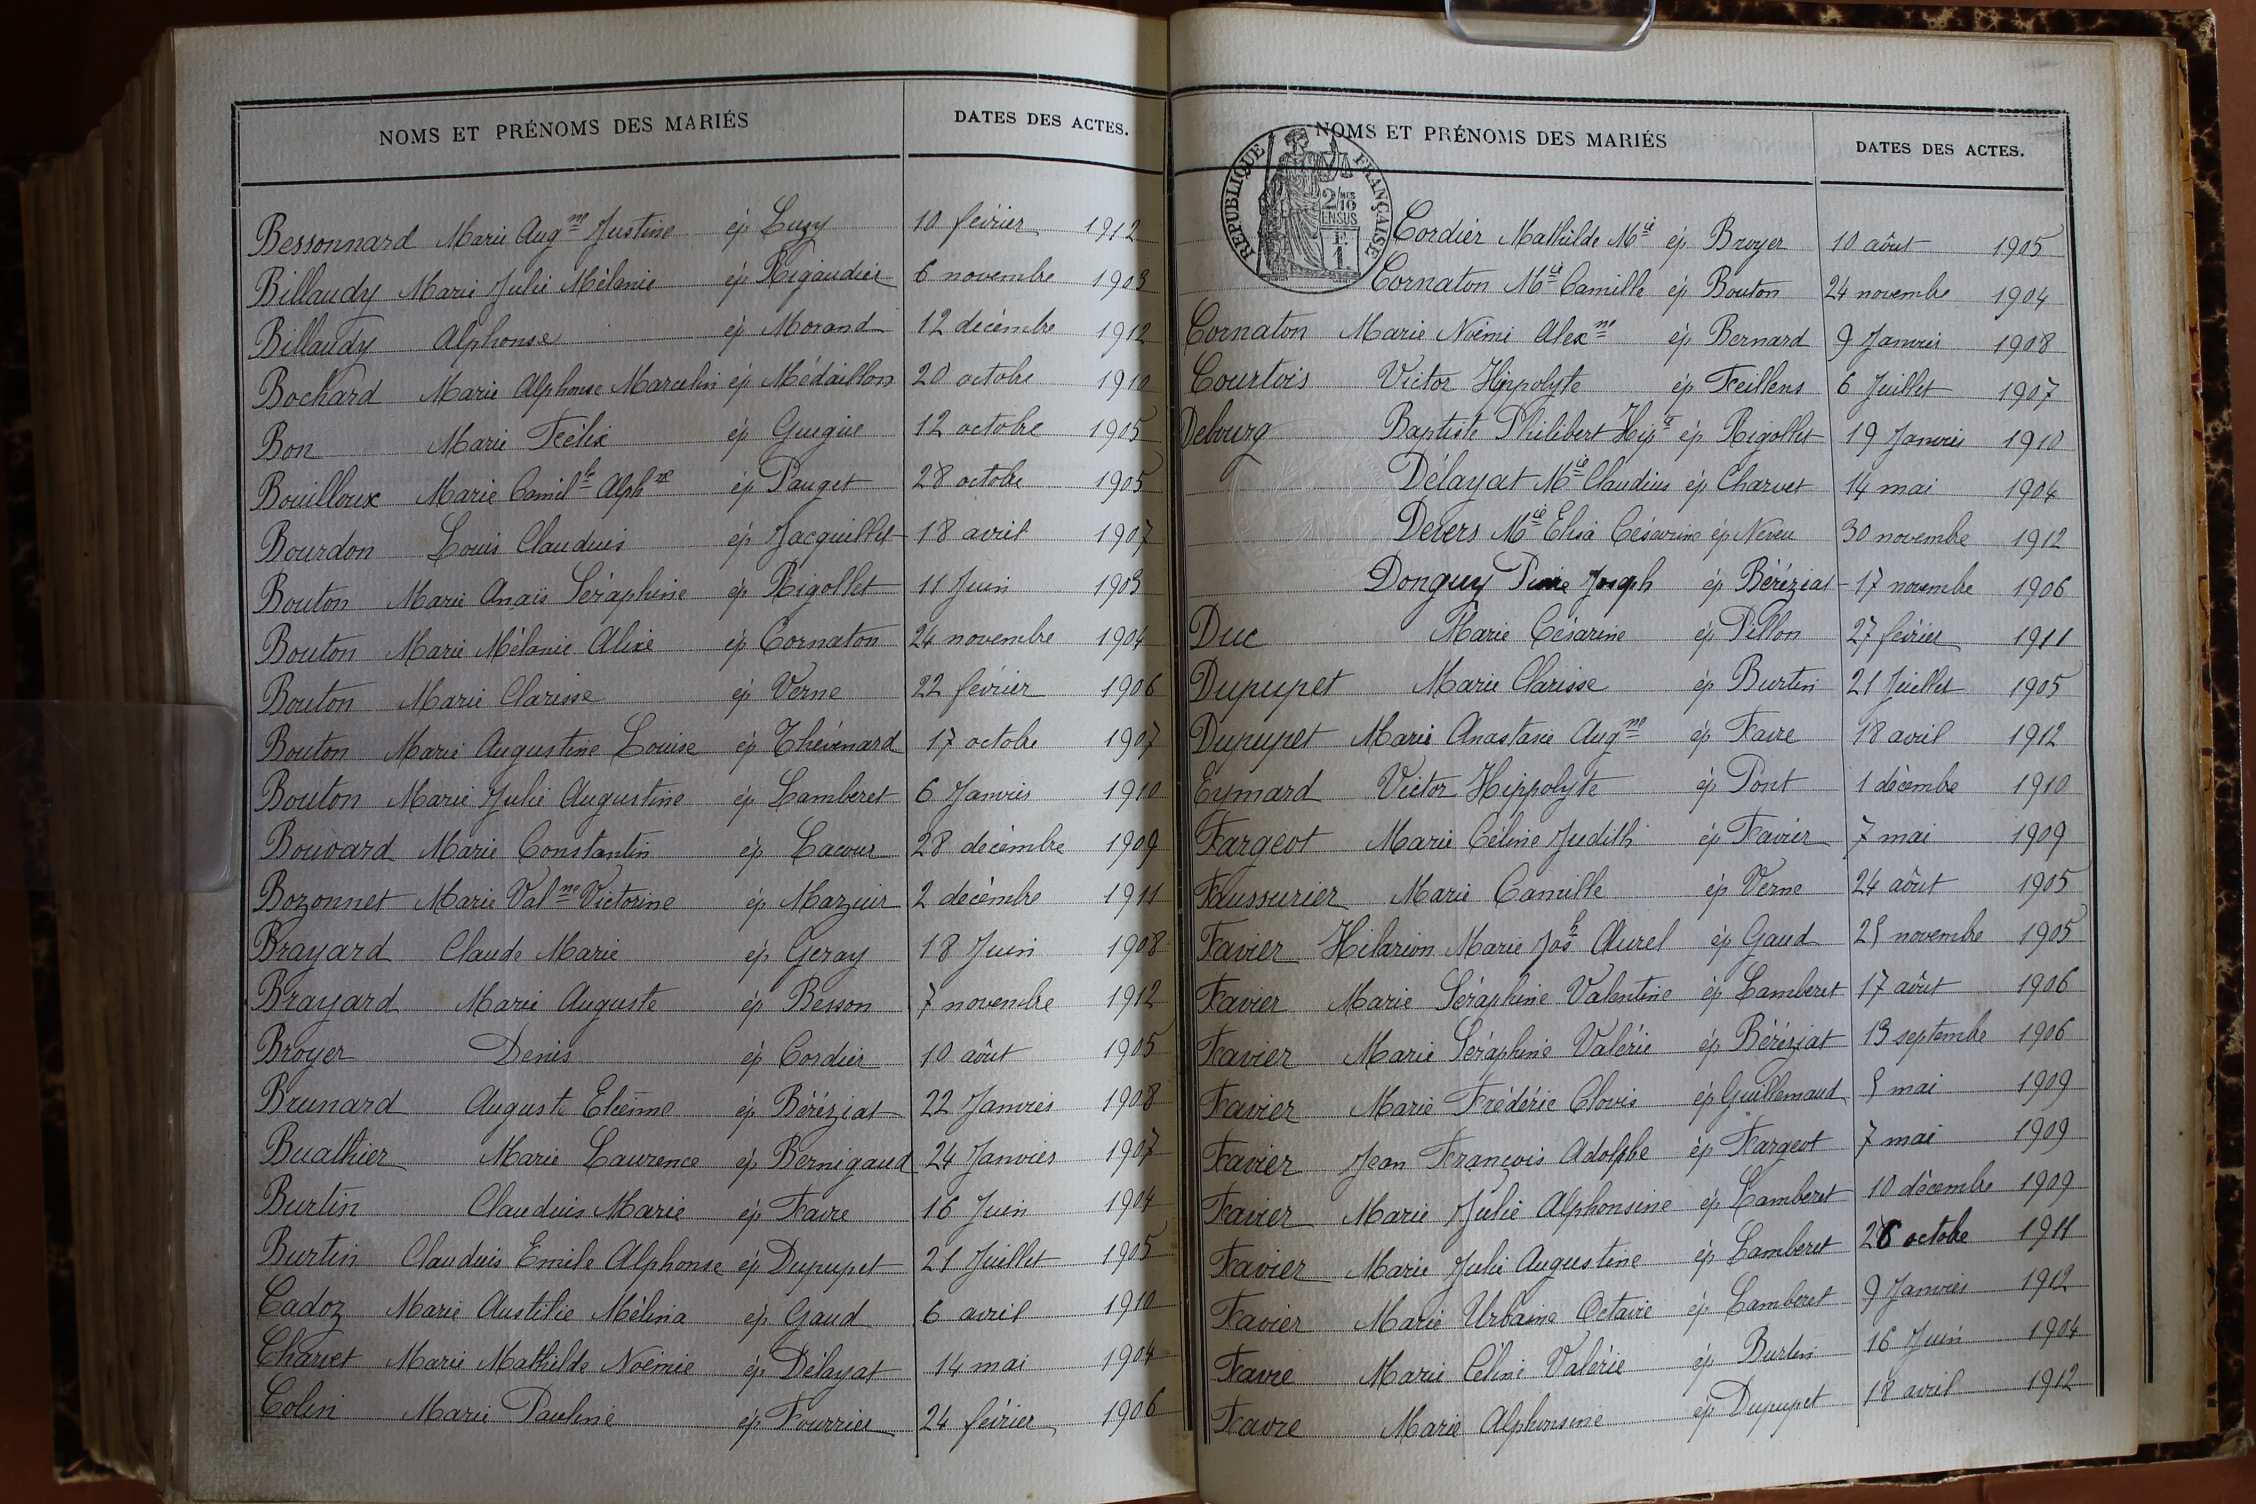 NOMS ET PRÉNOMS DES MARIÉS DATES DES ACTES.
Bessonnard Marie Aug^ne Justine ép Luzy 10 février 1912
Billaudy Marie Julie Mélanie ép Rigaudier 6 novembre 1903
Billaudy Alphonse ép Morand 12 décembre 1912
Bochard Marie Alphonse Marcelin ép Médaillon 20 octobre 1910
Bon Marie Félix ép Guigue 12 octobre 1905
Bouilloux Marie Camil^le Alph^se ép Pauget 28 octobre 1905
Bourdon Louis Claudius ép Jacquillet 18 avril 1907
Bouton Marie Anaïs Séraphine ép Rigollet 11 Juin 1903
Bouton Marie Mélanie Alixe ép Cornaton 24 novembre 1904
Bouton Marie Clarisse ép Verne 22 février 1906
Bouton Marie Augustine Louise ép Thévenard 17 octobre 1907
Bouton Marie Julie Augustine ép Lamberet 6 Janvier 1910
Bouvard Marie Constantin ép Lacour 28 décembre 1909
Bozonnet Marie Val^ne Victorine ép Mazuir 2 décembre 1911
Brayard Claude Marie ép Geray 18 Juin 1908
Brayard Marie Auguste ép Besson 7 novembre 1912
Broyer Denis ép Cordier 10 août 1905
Brunard Auguste Etienne ép Béréziat 22 Janvier 1908
Buathier Marie Laurence ép Bernigaud 24 Janvier 1907
Burtin Claudius Marie ép Favre 16 Juin 1904
Burtin Claudius Emile Alphonse ép Dupupet 21 Juillet 1905
Cadoz Marie Austilie Mélina ép Gaud 6 avril 1910
Charvet Marie Mathilde Noémie ép Délayat 14 mai 1904
Colin Marie Pauline ép Fourrier 24 février 1906
NOMS ET PRÉNOMS DES MARIÉS DATES DES ACTES.
RÉPUBLIQUE FRANÇAISE
2/10
EN SUS
Cordier Mathilde M^ie ép Broyer 10 août 1905
Cornaton M^ie Camille ép Bouton 24 novembre 1904
Cornaton Marie Noémi Alex^ne ép Bernard 9 Janvier 1908
Courtois Victor Hippolyte ép Feillens 6 Juillet 1907
Debourg Baptiste Philibert Hip^te ép Rigollet 19 Janvier 1910
Délayat M^ie Claudius ép Charvet 14 mai 1904
Devers M^ie Elisa Césarine ép Neveu 30 novembre 1912
Donguy Pierre Joseph ép Béréziat 17 novembre 1906
Duc Marie Césarine ép Pillon 27 février 1911
Dupupet Marie Clarisse ép Burtin 21 Juillet 1905
Dupupet Marie Anastasie Aug^ne ép Favre 18 avril 1912
Eymard Victor Hippolyte ép Pont 1 décembre 1910
Fargeot Marie Céline Judith ép Favier 7 mai 1909
Faussurier Marie Camille ép Verne 24 août 1905
Favier Hilarion Marie Jos^h Aurel ép Gaud 25 novembre 1905
Favier Marie Séraphine Valentine ép Lamberet 17 août 1906
Favier Marie Séraphine Valérie ép Béréziat 13 septembre 1906
Favier Marie Frédéric Clovis ép Guillemaud 5 mai 1909
Favier Jean François Adolphe ép Fargeot 7 mai 1909
Favier Marie Julie Alphonsine ép Lamberet 10 décembre 1909
Favier Marie Julie Augustine ép Lamberet 26 octobre 1911
Favier Marie Urbaine Octavie ép Lamberet 9 Janvier 1912
Favre Marie Céline Valérie ép Burtin 16 Juin 1904
Favre Marie Alphonsine ép Dupupet 18 avril 1912